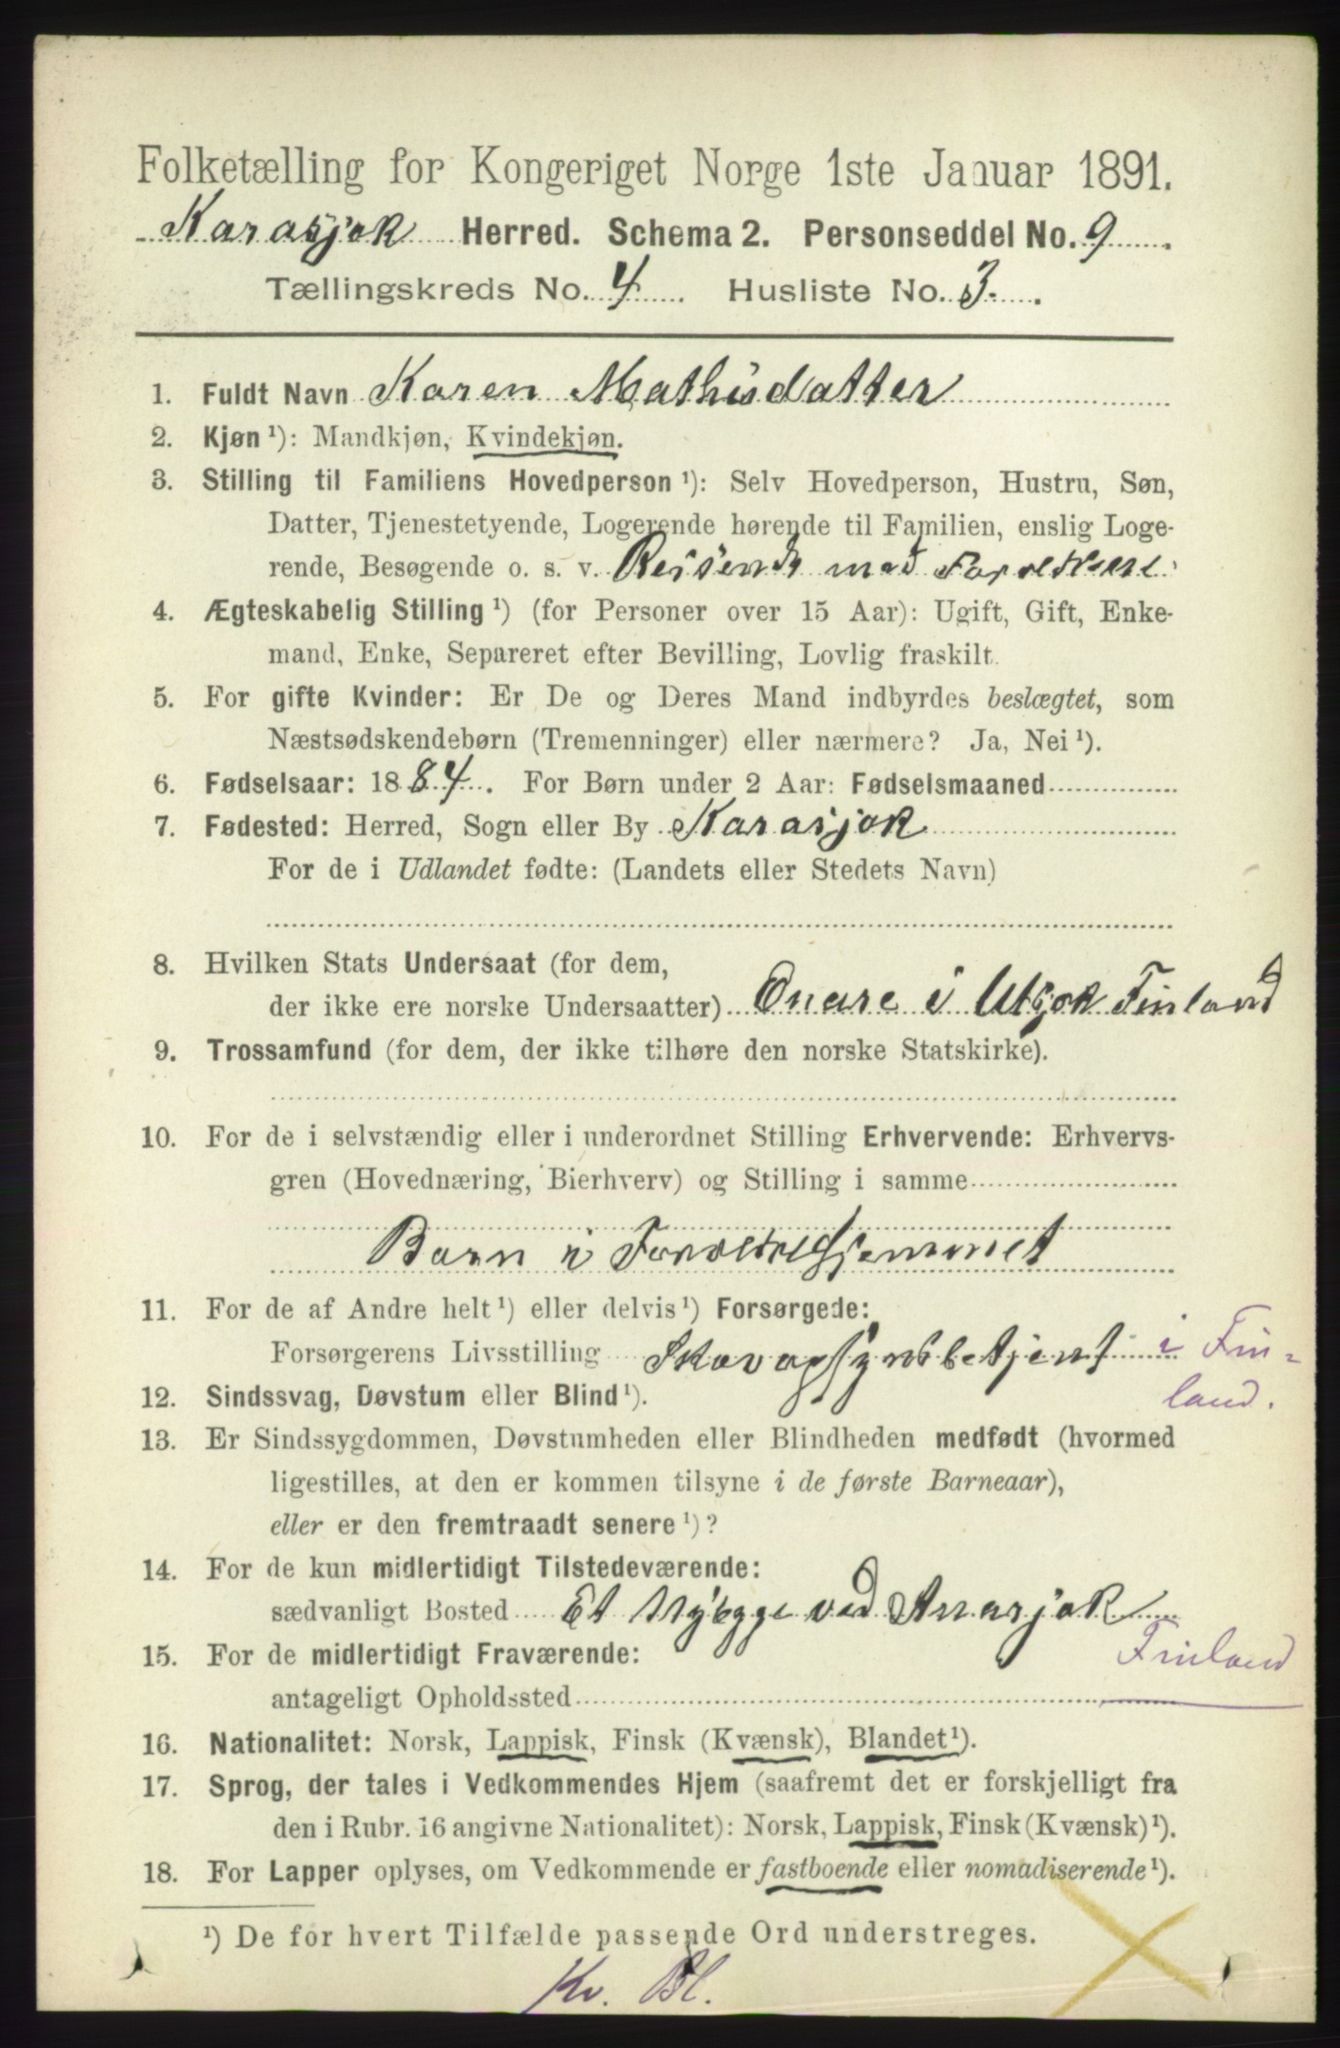 Folketælling for Kongeriget Norge 1ste Januar 1891.
Karasjok Herred. Schema 2. Personseddel No. 9.
Tællingskreds No. 4. Husliste No. 3.
1. Fuldt Navn Karen Mathisdatter
2. Kjøn ¹): Mandkjøn, Kvindekjøn.
3. Stilling til Familiens Hovedperson ¹): Selv Hovedperson, Hustru, Søn,
Datter, Tjenestetyende, Logerende hørende til Familien, enslig Loge-
rende, Besøgende o. s. v. Reisende med Forældrene
4. Ægteskabelig Stilling ¹) (for Personer over 15 Aar): Ugift, Gift, Enke-
mand, Enke, Separeret efter Bevilling, Lovlig fraskilt.
5. For gifte Kvinder: Er De og Deres Mand indbyrdes beslægtet, som
Næstsødskendebørn (Tremenninger) eller nærmere? Ja, Nei ¹).
6. Fødselsaar: 1884. For Børn under 2 Aar: Fødselsmaaned
7. Fødested: Herred, Sogn eller By Karasjok
For de i Udlandet fødte: (Landets eller Stedets Navn)
8. Hvilken Stats Undersaat (for dem,
der ikke ere norske Undersaatter) Enare i Utsjok Finland
9. Trossamfund (for dem, der ikke tilhøre den norske Statskirke).
10. For de i selvstændig eller i underordnet Stilling Erhvervende: Erhvervs-
gren (Hovednæring, Bierhverv) og Stilling i samme
Barn i Forældrehjemmet
11. For de af Andre helt ¹) eller delvis ¹) Forsørgede:
Forsørgerens Livsstilling Skovopsynsbetjent i Fin-
land.
12. Sindssvag, Døvstum eller Blind ¹).
13. Er Sindssygdommen, Døvstumheden eller Blindheden medfødt (hvormed
ligestilles, at den er kommen tilsyne i de første Barneaar),
eller er den fremtraadt senere ¹)?
14. For de kun midlertidigt Tilstedeværende:
sædvanligt Bosted Et Nybygge ved Anarjok
Finland
15. For de midlertidigt Fraværende:
antageligt Opholdssted
16. Nationalitet: Norsk, Lappisk, Finsk (Kvænsk), Blandet ¹).
17. Sprog, der tales i Vedkommendes Hjem (saafremt det er forskjelligt fra
den i Rubr. 16 angivne Nationalitet): Norsk, Lappisk, Finsk (Kvænsk) ¹).
18. For Lapper oplyses, om Vedkommende er fastboende eller nomadiserende ¹).
¹) De for hvert Tilfælde passende Ord understreges.
Kv. Bl.